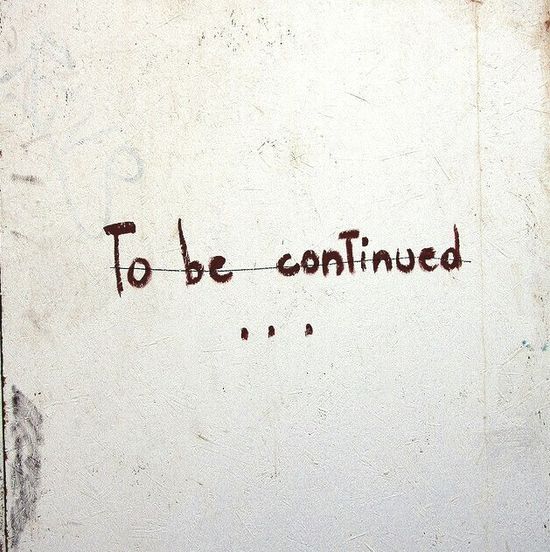 To be conTinued
...